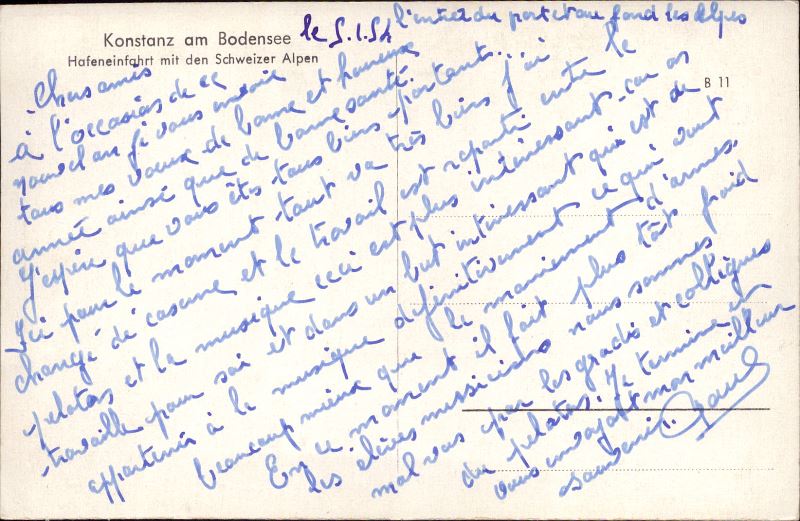 Konstanz am Bodensee
Hafeneinfahrt mit den Schweizer Alpen
B 11
le 5.1.54
l'entrée du port et au fond les Alpes
Chers amis
à l'occasion de ce
nouvel an je vous envoie
tous mes voeux de bonne et heureuse
année ainsi que de bonne santé.
J'espère que vous êtes tous bien portants...
Ici pour le moment tout va très bien j'ai
changé de caserne et le travail est reparti entre le
peloton et la musique ceci est plus intéressant car on
travaille pour soi et dans un but intéressant qui est de
appartenir à la musique définitivement ce qui vaut
beaucoup mieux que le maniement d'armes.
En ce moment il fait plus tôt froid
les élèves musiciens nous sommes
mal vus par les gradés et collègues
du peloton. Je termine en
vous envoyant mon meilleur
souvenir.